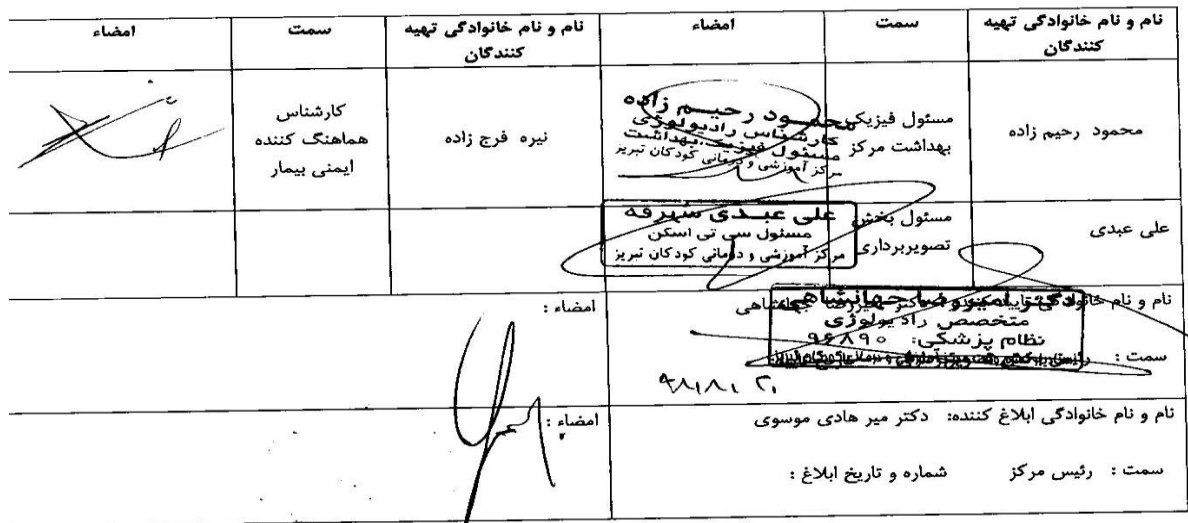 نام و نام خانوادگی تهیه کنندگان
سمت
امضاء
نام و نام خانوادگی تهیه کنندگان
سمت
امضاء
محمود رحیم زاده
مسئول فیزیک
بهداشت مرکز
محمود رحیم زاده
کارشناس رادیولوژی
مسئول فیزیک بهداشت
مرکز آموزشی و درمانی کودکان تبریز
نیره فرج زاده
کارشناس
هماهنگ کننده
ایمنی بیمار
علی عبدی
مسئول بخش
تصویربرداری
علی عبدی شهرقه
مسئول سی تی اسکن
مرکز آموزشی و درمانی کودکان تبریز
نام و نام خانوادگی
دکتر امیررضا جهانشاهی
متخصص رادیولوژی
نظام پزشکی: ۹۶۸۹۰
سمت :
۹۸,۸,۲۰
امضاء :
نام و نام خانوادگی ابلاغ کننده: دکتر میر هادی موسوی
امضاء :
سمت : رئیس مرکز شماره و تاریخ ابلاغ :